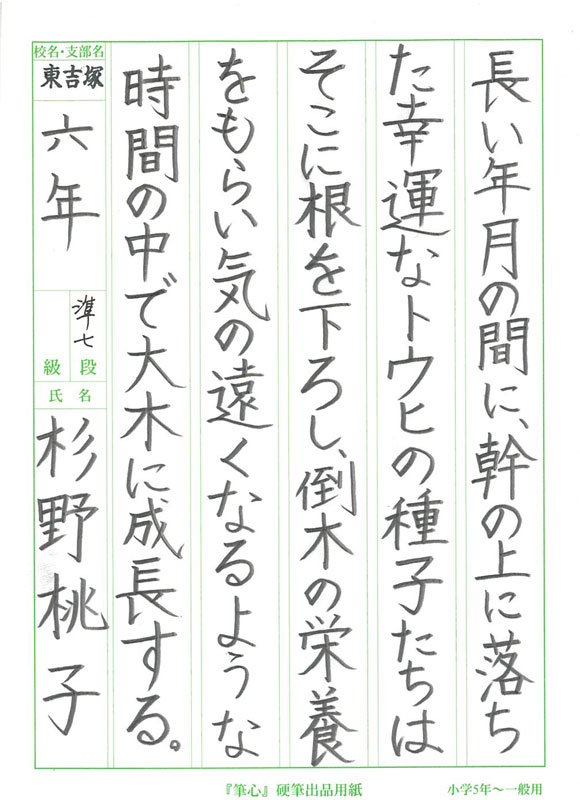 長い年月の間に、幹の上に落ち
た幸運なトウヒの種子たちは
そこに根を下ろし、倒木の栄養
をもらい気の遠くなるような
時間の中で大木に成長する。
校名・支部名
東吉塚
六年
準七
段
級
氏名
杉野桃子
『筆心』硬筆出品用紙
小学5年～一般用